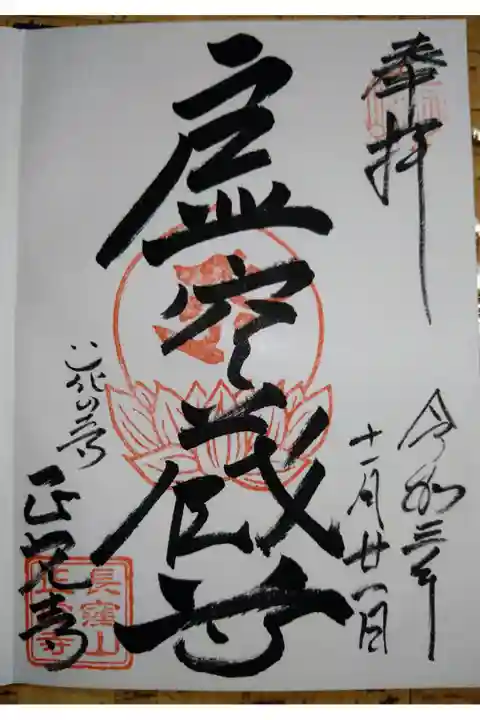 奉拝
令和三年
十一月廿一日
虚空蔵尊
正覚寺
長窪山
正覚寺